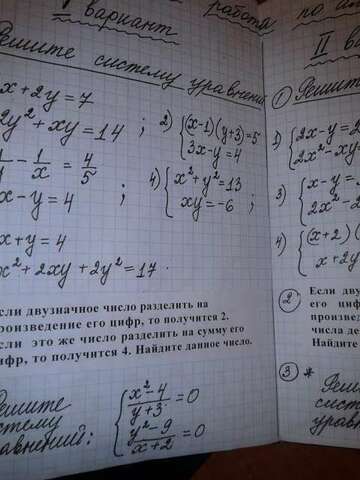 I вариант
Решите систему уравнений
x + 2y = 7
2y² + xy = 14 ;
1/y - 1/x = 4/5
x - y = 4 ;
x + y = 4
x² + 2xy + 2y² = 17 .
2) { (x-1)(y+3) = 5
3x - y = 4
4) { x² + y² = 13
xy = -6 ;
если двузначное число разделить на
произведение его цифр, то получится 2.
если это же число разделить на сумму его
цифр, то получится 4. Найдите данное число.
решите
систему
уравнений:
{ (x² - 4)/(y + 3) = 0
(y² - 9)/(x + 2) = 0
работа по
II в
1 Решите
1) { 2x - y =
2x² - xy =
3) { x - y =
2x² - 2
4) { (x + 2)(
x + 2y
2 Если дву
его циф
произвед
числа де
Найдите
3 * Реш
сист
уравн